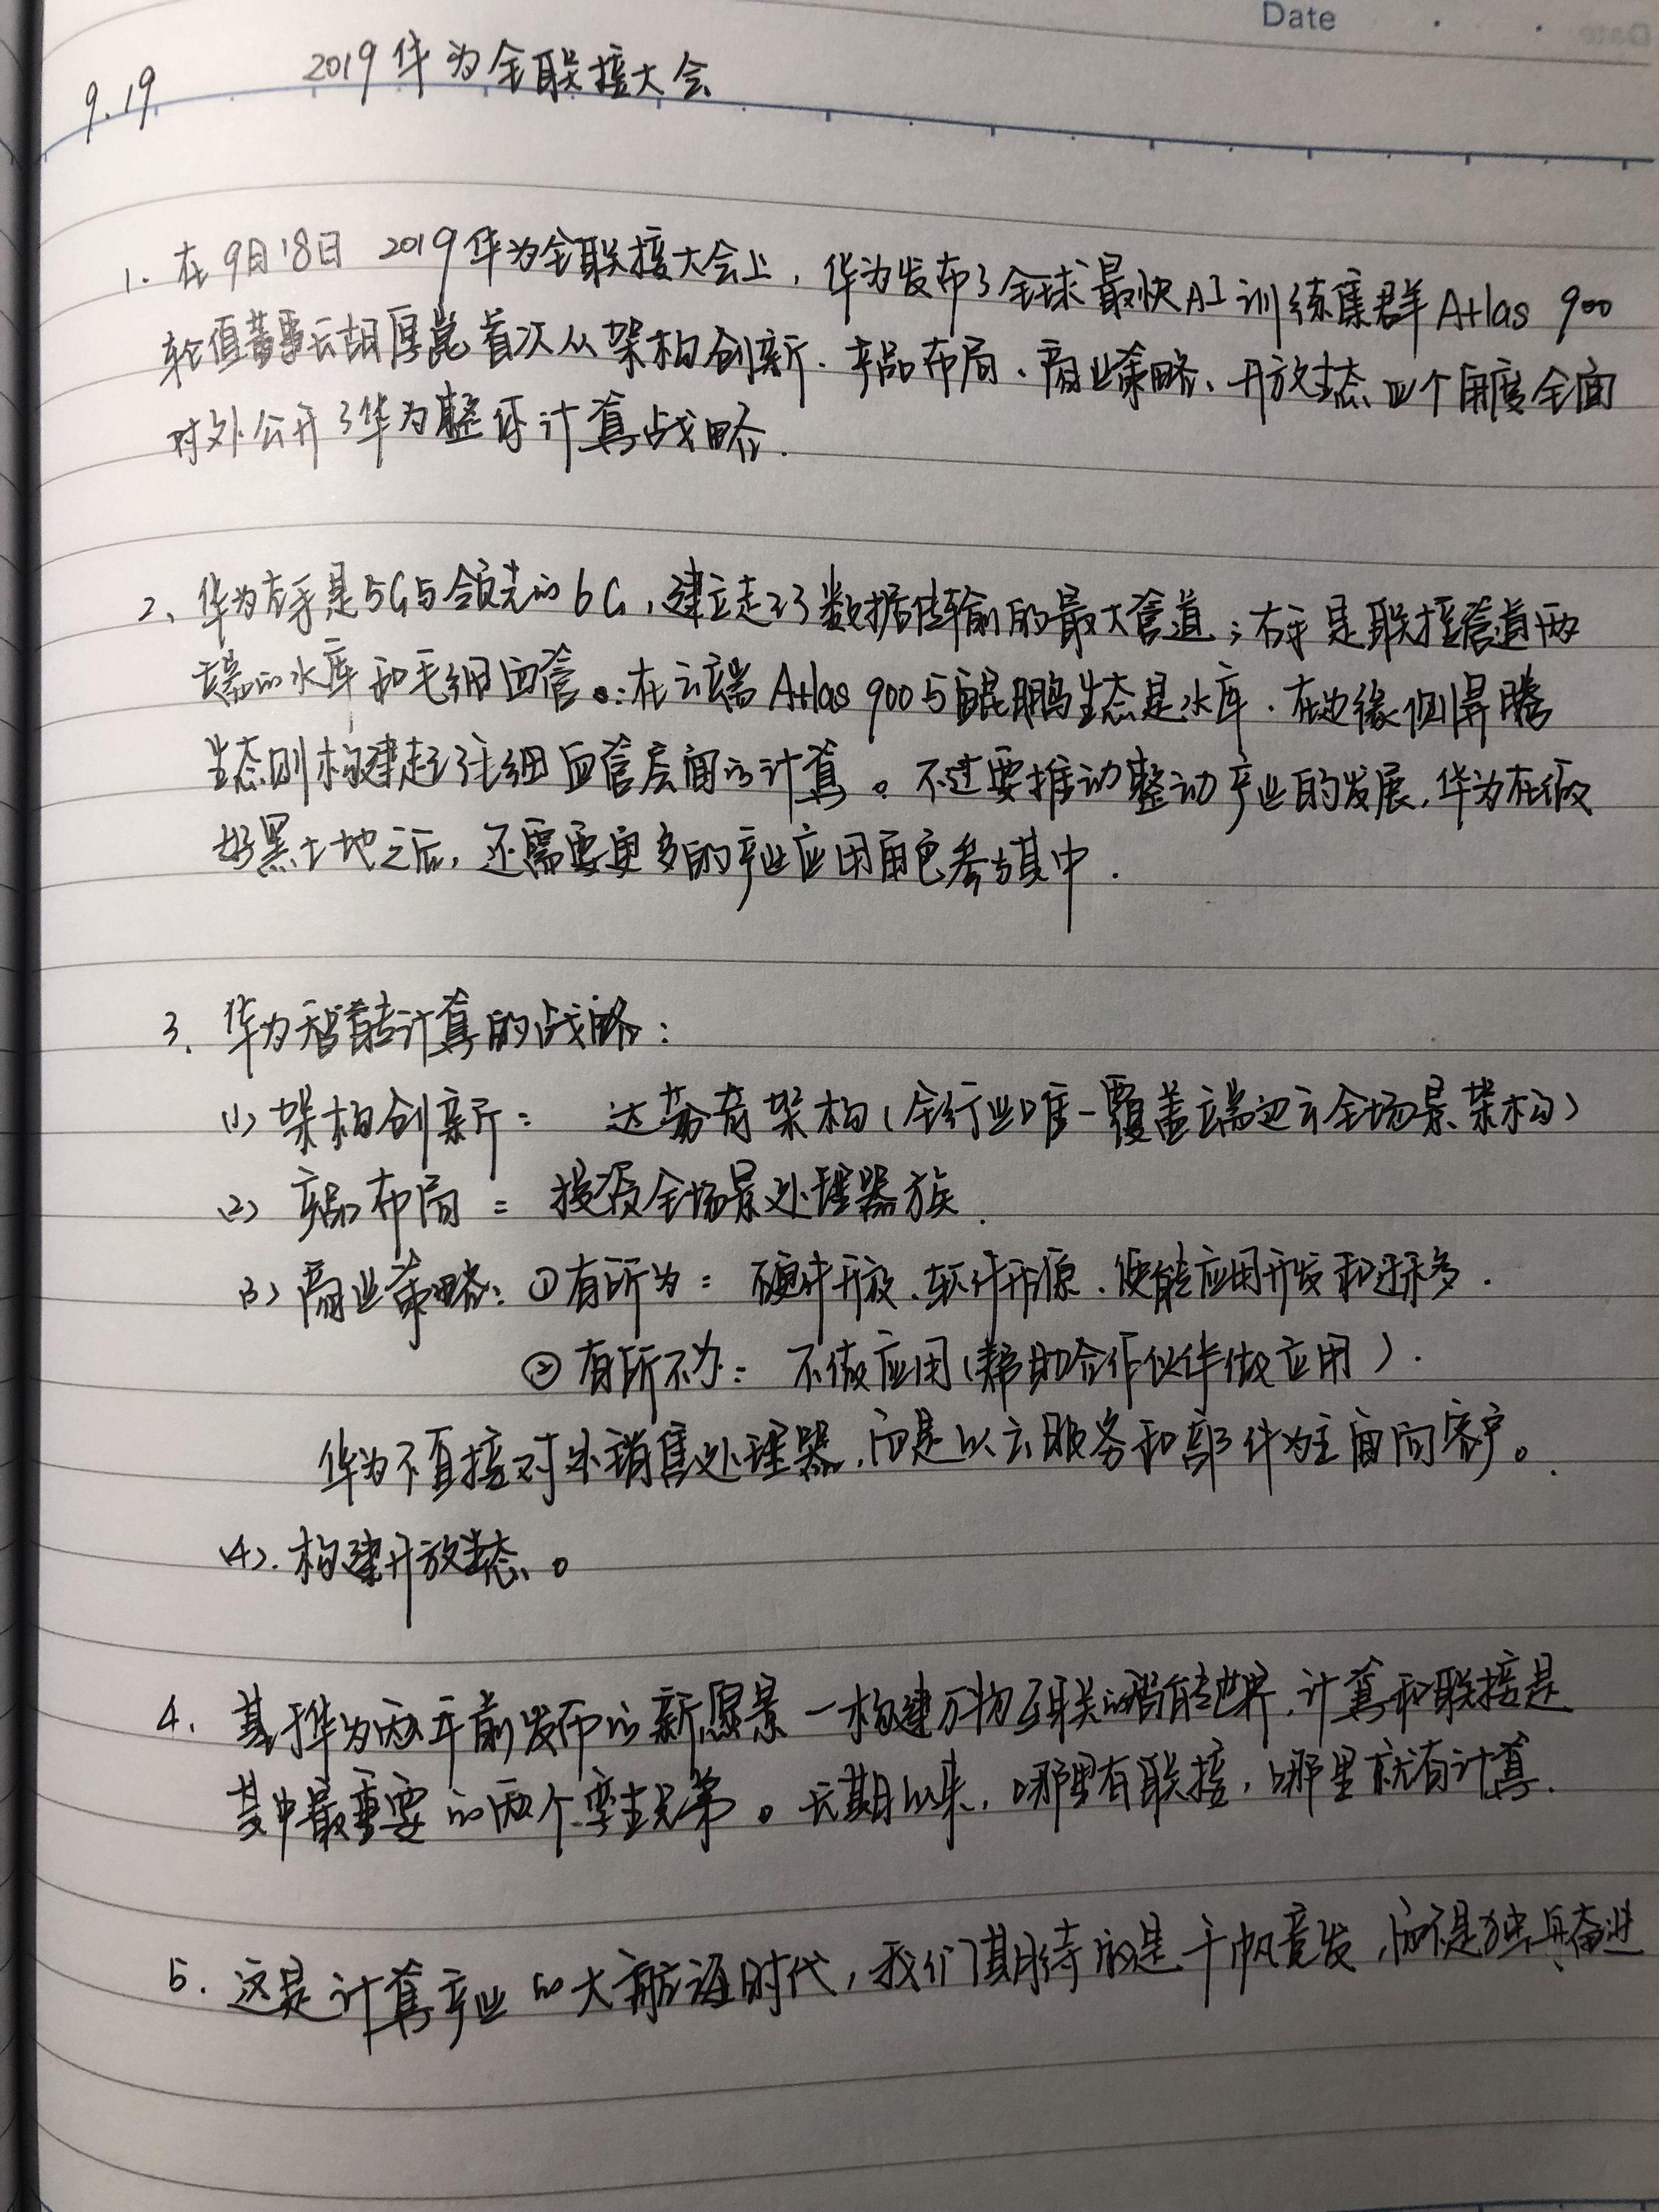 Date
9.19 2019华为全联接大会
1. 在9月18日 2019华为全联接大会上，华为发布了全球最快AI训练集群Atlas 900
轮值董事长胡厚崑首次从架构创新、产品布局、商业策略、开放生态四个角度全面
对外公开了华为整体计算战略.
2、华为左手是5G与领先的6G，建立起了数据传输的最大管道；右手是联接管道两
端的水库和毛细血管。在云端Atlas 900与鲲鹏生态是水库.在边缘侧昇腾
生态则构建起了毛细血管层面的计算。不过要推动整动产业的发展，华为在做
好黑土地之后，还需要更多的产业应用角色参与其中.
3、华为智能计算的战略：
(1) 架构创新： 达芬奇架构(全行业唯一覆盖端边云全场景架构)
(2) 产品布局： 投资全场景处理器族.
(3) 商业策略：①有所为：硬件开放、软件开源、使能应用开发和迁移.
②有所不为：不做应用(帮助合作伙伴做应用).
华为不直接对外销售处理器，而是以云服务和部件为主面向客户。
(4). 构建开放生态。
4. 基于华为两年前发布的新愿景一构建万物互联的智能世界，计算和联接是
其中最重要的两个孪生兄弟。长期以来，哪里有联接，哪里就有计算.
5. 这是计算产业的大航海时代，我们期待的是千帆竞发，而不是独舟奋进